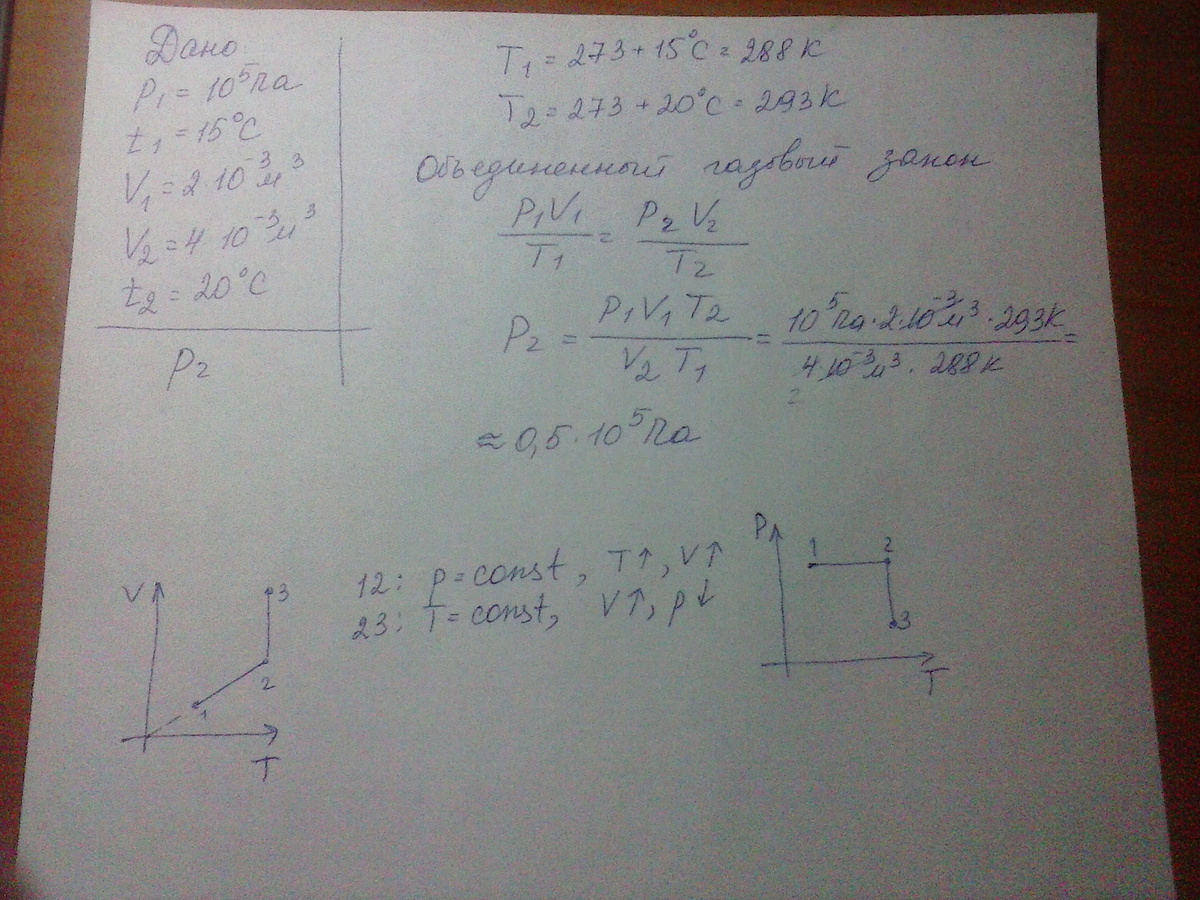 Дано
P₁ = 10⁵ Па
t₁ = 15°C
V₁ = 2·10⁻³ м³
V₂ = 4 10⁻³ м³
t₂ = 20°C
P₂
T₁ = 273 + 15°C = 288 K
T₂ = 273 + 20°C = 293 K
Объединенный газовый закон
P₁V₁/T₁ = P₂V₂/T₂
P₂ = P₁V₁T₂/V₂T₁ = 10⁵Па·2·10⁻³м³·293K/4·10⁻³м³·288K =
≈ 0,5·10⁵ Па
12: p = const, T↑, V↑
23: T = const, V↑, p↓
V
3
2
1
T
P
1
2
3
T